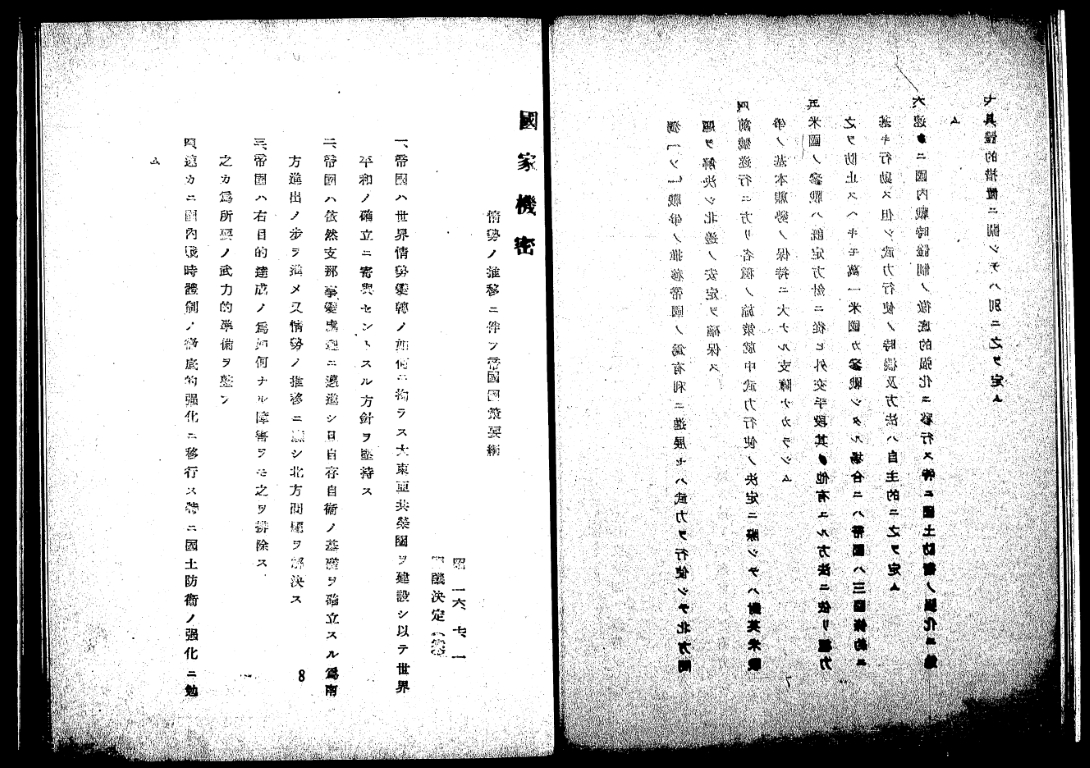 獨「ソ」戰爭ノ推移帝國ノ爲有利ニ進展セハ武力ヲ行使シテ北方問
題ヲ解決シ北邊ノ安定ヲ確保ス
四前號遂行ニ方リ各種ノ施策就中武力行使ノ決定ニ際シテハ對英米戰
爭ノ基本態勢ノ保持ニ大ナル支障ナカラシム
五米國ノ參戰ハ既定方針ニ從ヒ外交手段其ノ他有ユル方法ニ依リ極力
之ヲ防止スヘキモ萬一米國カ參戰シタル場合ニハ帝國ハ三國條約ニ
基キ行動ス但シ武力行使ノ時機及方法ハ自主的ニ之ヲ定ム
六速カニ國內戰時體制ノ徹底的强化ニ移行ス特ニ國土防衛ノ强化ニ勉
ム
七具體的措置ニ關シテハ別ニ之ヲ定ム
7
國家機密
情勢ノ推移ニ伴フ帝國國策要綱
昭一六、七、一
閣議決定（案）
一、帝國ハ世界情勢變轉ノ如何ニ拘ラス大東亞共榮圈ヲ建設シ以テ世界
平和ノ確立ニ寄與セントスル方針ヲ堅持ス
二、帝國ハ依然支那事變處理ニ邁進シ且自存自衛ノ基礎ヲ確立スル爲南
方進出ノ步ヲ進メ又情勢ノ推移ニ應シ北方問題ヲ解決ス
三、帝國ハ右目的達成ノ爲如何ナル障害ヲモ之ヲ排除ス
之カ爲所要ノ武力的準備ヲ整フ
四、速カニ國內戰時體制ノ徹底的强化ニ移行ス特ニ國土防衛ノ强化ニ勉
ム
8